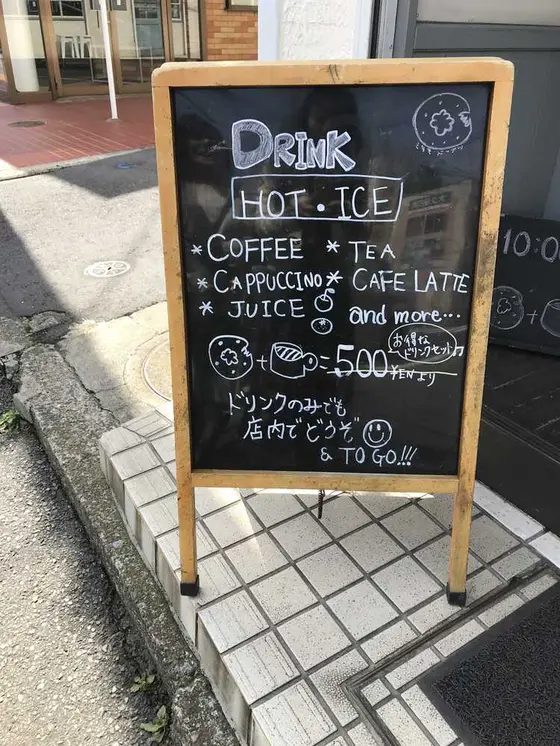 DRINK
HOT・ICE
* COFFEE * TEA
* CAPPUCCINO * CAFE LATTE
* JUICE and more…
お得な
ドリンクセット♫
+ = 500 YENより
ドリンクのみでも
店内でどうぞ
& TO GO!!!
10:0
+